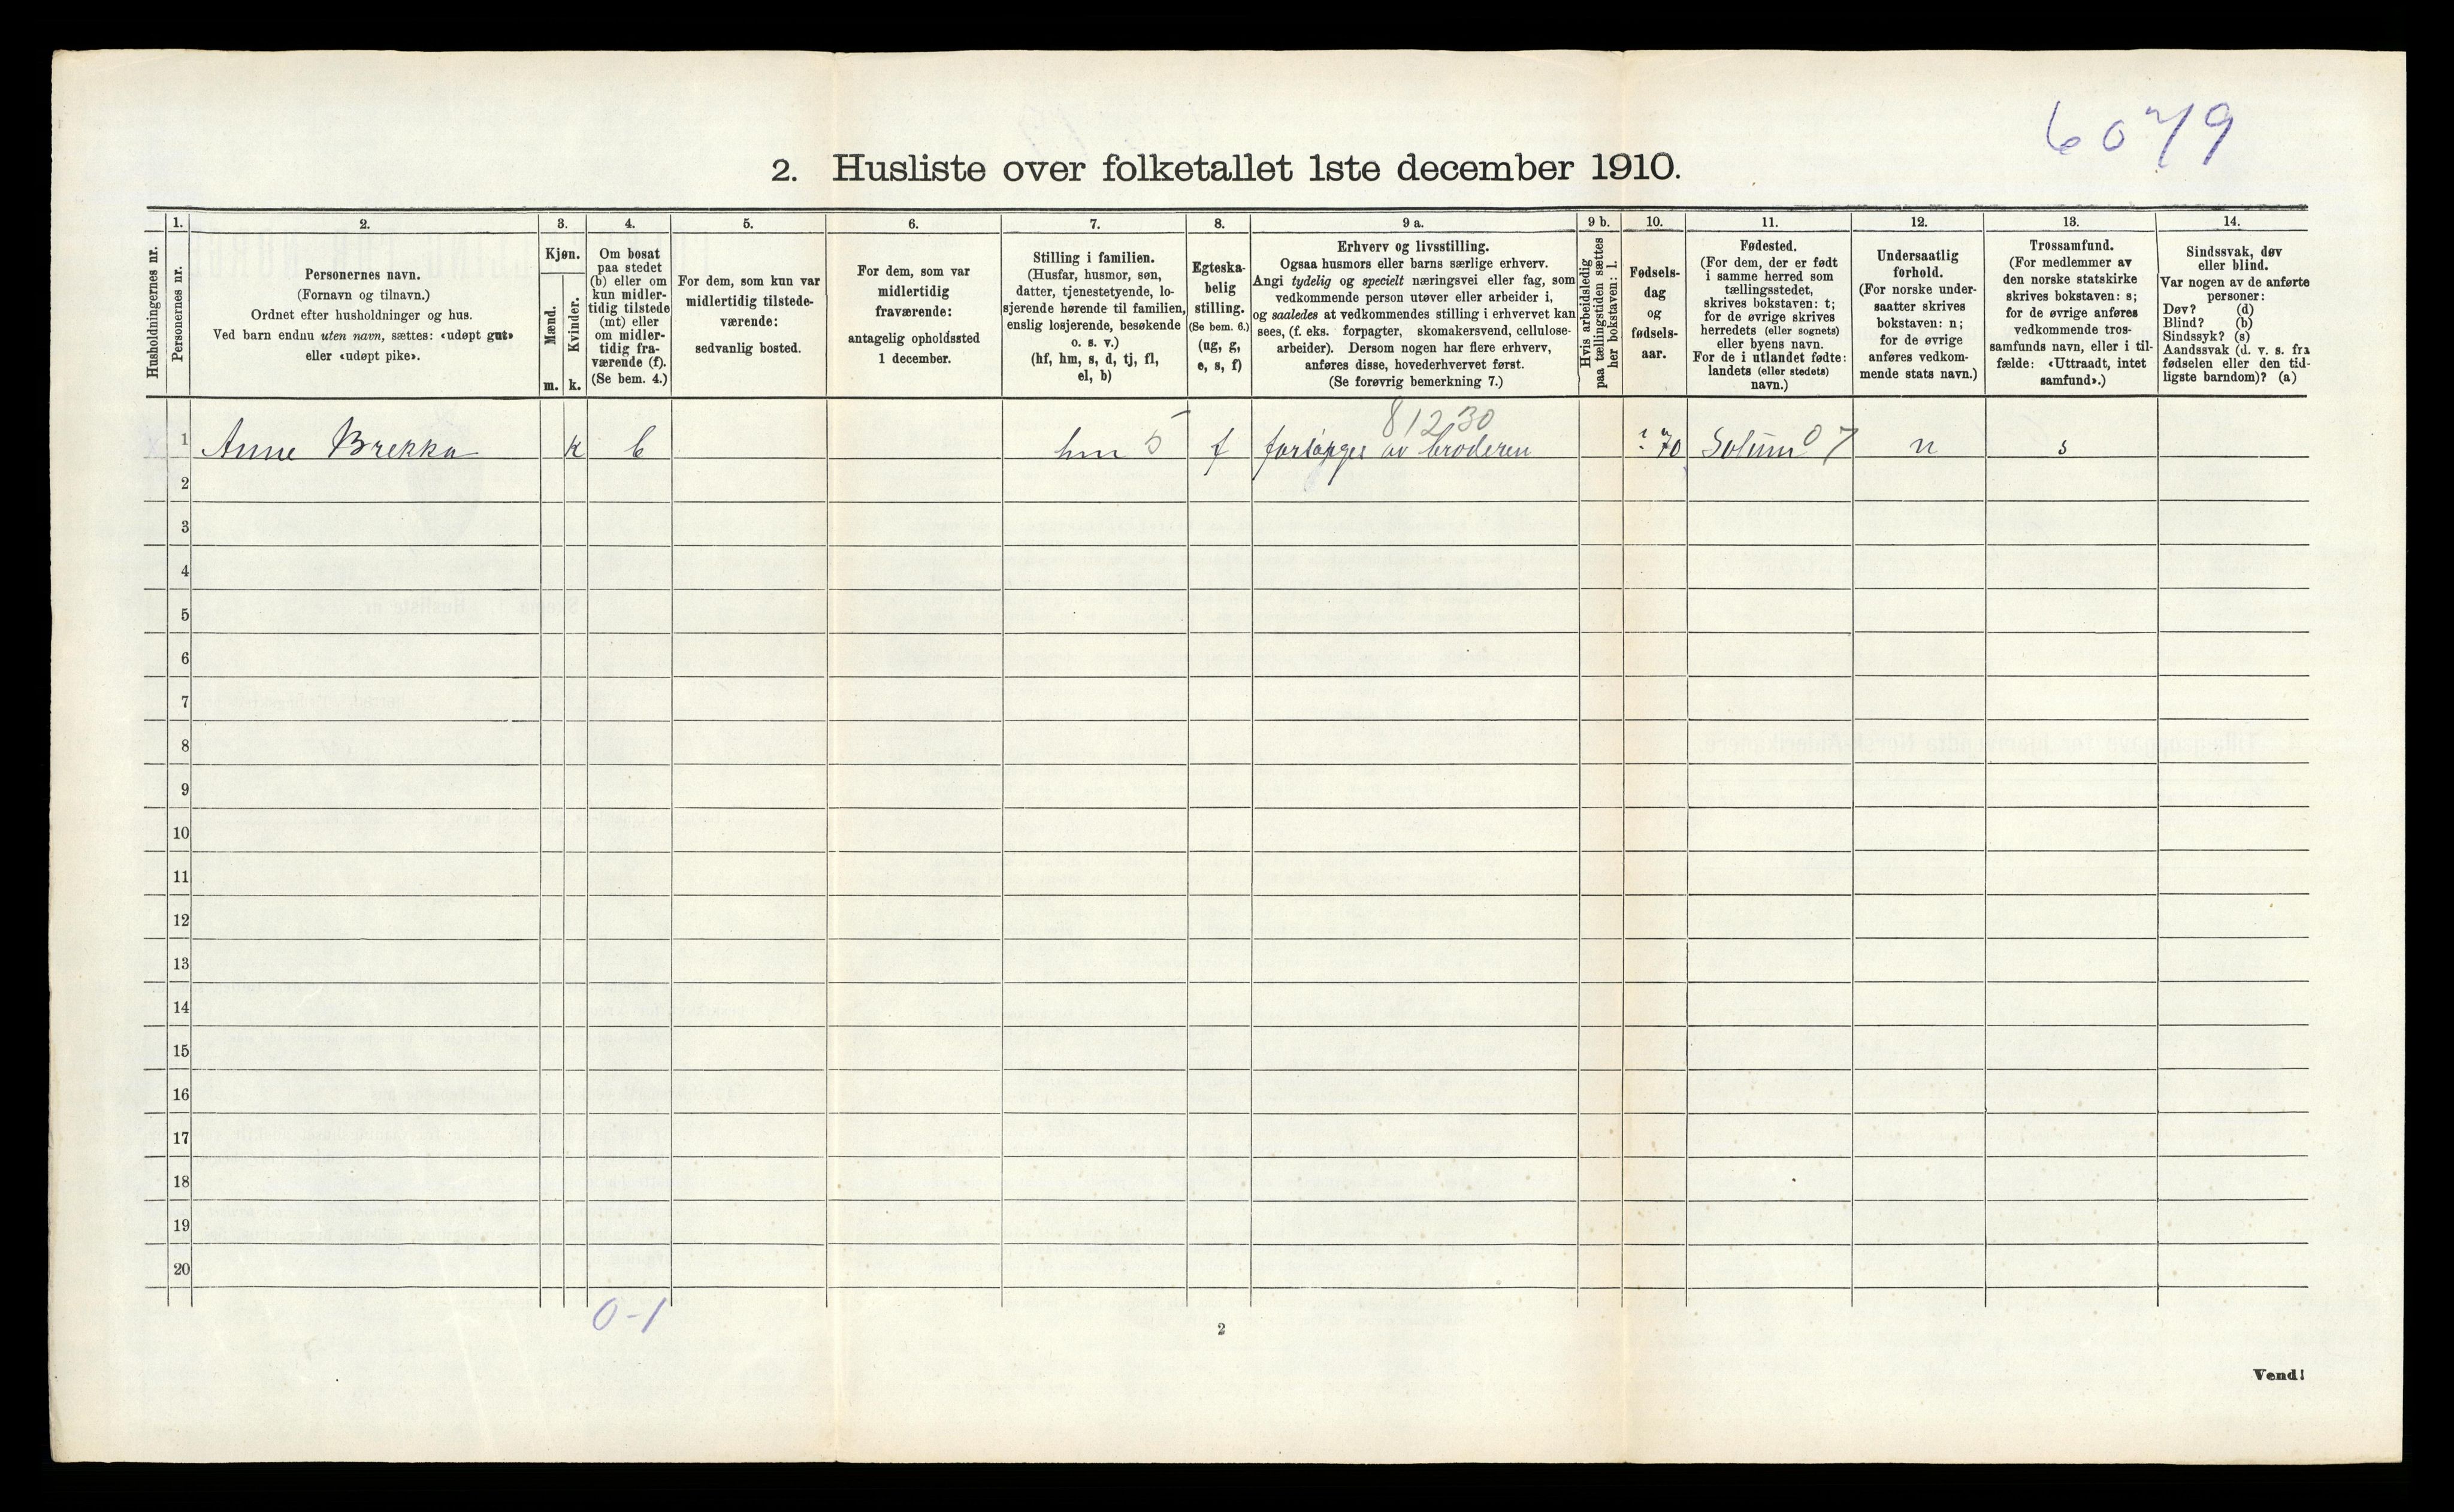 6079
2. Husliste over folketallet 1ste december 1910.
Husholdningernes nr.
1.
Personernes nr.
2.
Personernes navn.
(Fornavn og tilnavn.)
Ordnet efter husholdninger og hus.
Ved barn endnu uten navn, sættes: «udøpt gut»
eller «udøpt pike».
3.
Kjøn.
Mænd.
m.
Kvinder.
k.
4.
Om bosat
paa stedet
(b) eller om
kun midler-
tidig tilstede
(mt) eller
om midler-
tidig fra-
værende (f).
(Se bem. 4.)
5.
For dem, som kun var
midlertidig tilstede-
værende:
sedvanlig bosted.
6.
For dem, som var
midlertidig
fraværende:
antagelig opholdssted
1 december.
7.
Stilling i familien.
(Husfar, husmor, søn,
datter, tjenestetyende, lo-
sjerende hørende til familien,
enslig losjerende, besøkende
o. s. v.)
(hf, hm, s, d, tj, fl,
el, b)
8.
Egteska-
belig
stilling.
(Se bem. 6.)
(ug, g,
e, s, f)
9 a.
Erhverv og livsstilling.
Ogsaa husmors eller barns særlige erhverv.
Angi tydelig og specielt næringsvei eller fag, som
vedkommende person utøver eller arbeider i,
og saaledes at vedkommendes stilling i erhvervet kan
sees, (f. eks. forpagter, skomakersvend, cellulose-
arbeider). Dersom nogen har flere erhverv,
anføres disse, hovederhvervet først.
(Se forøvrig bemerkning 7.)
9 b.
Hvis arbeidsledig
paa tællingstiden sættes
her bokstaven: l.
10.
Fødsels-
dag
og
fødsels-
aar.
11.
Fødested.
(For dem, der er født
i samme herred som
tællingsstedet,
skrives bokstaven: t;
for de øvrige skrives
herredets (eller sognets)
eller byens navn.
For de i utlandet fødte:
landets (eller stedets)
navn.)
12.
Undersaatlig
forhold.
(For norske under-
saatter skrives
bokstaven: n;
for de øvrige
anføres vedkom-
mende stats navn.)
13.
Trossamfund.
(For medlemmer av
den norske statskirke
skrives bokstaven: s;
for de øvrige anføres
vedkommende tros-
samfunds navn, eller i til-
fælde: «Uttraadt, intet
samfund».)
14.
Sindssvak, døv
eller blind.
Var nogen av de anførte
personer:
Døv? (d)
Blind? (b)
Sindssyk? (s)
Aandssvak (d. v. s. fra
fødselen eller den tid-
ligste barndom)? (a)
81230
1 Anne Brekka k b hm 5 f forsørges av broderen ? 70 Solum 07 n s
2
3
4
5
6
7
8
9
10
11
12
13
14
15
16
17
18
19
20
0-1
2
Vend!